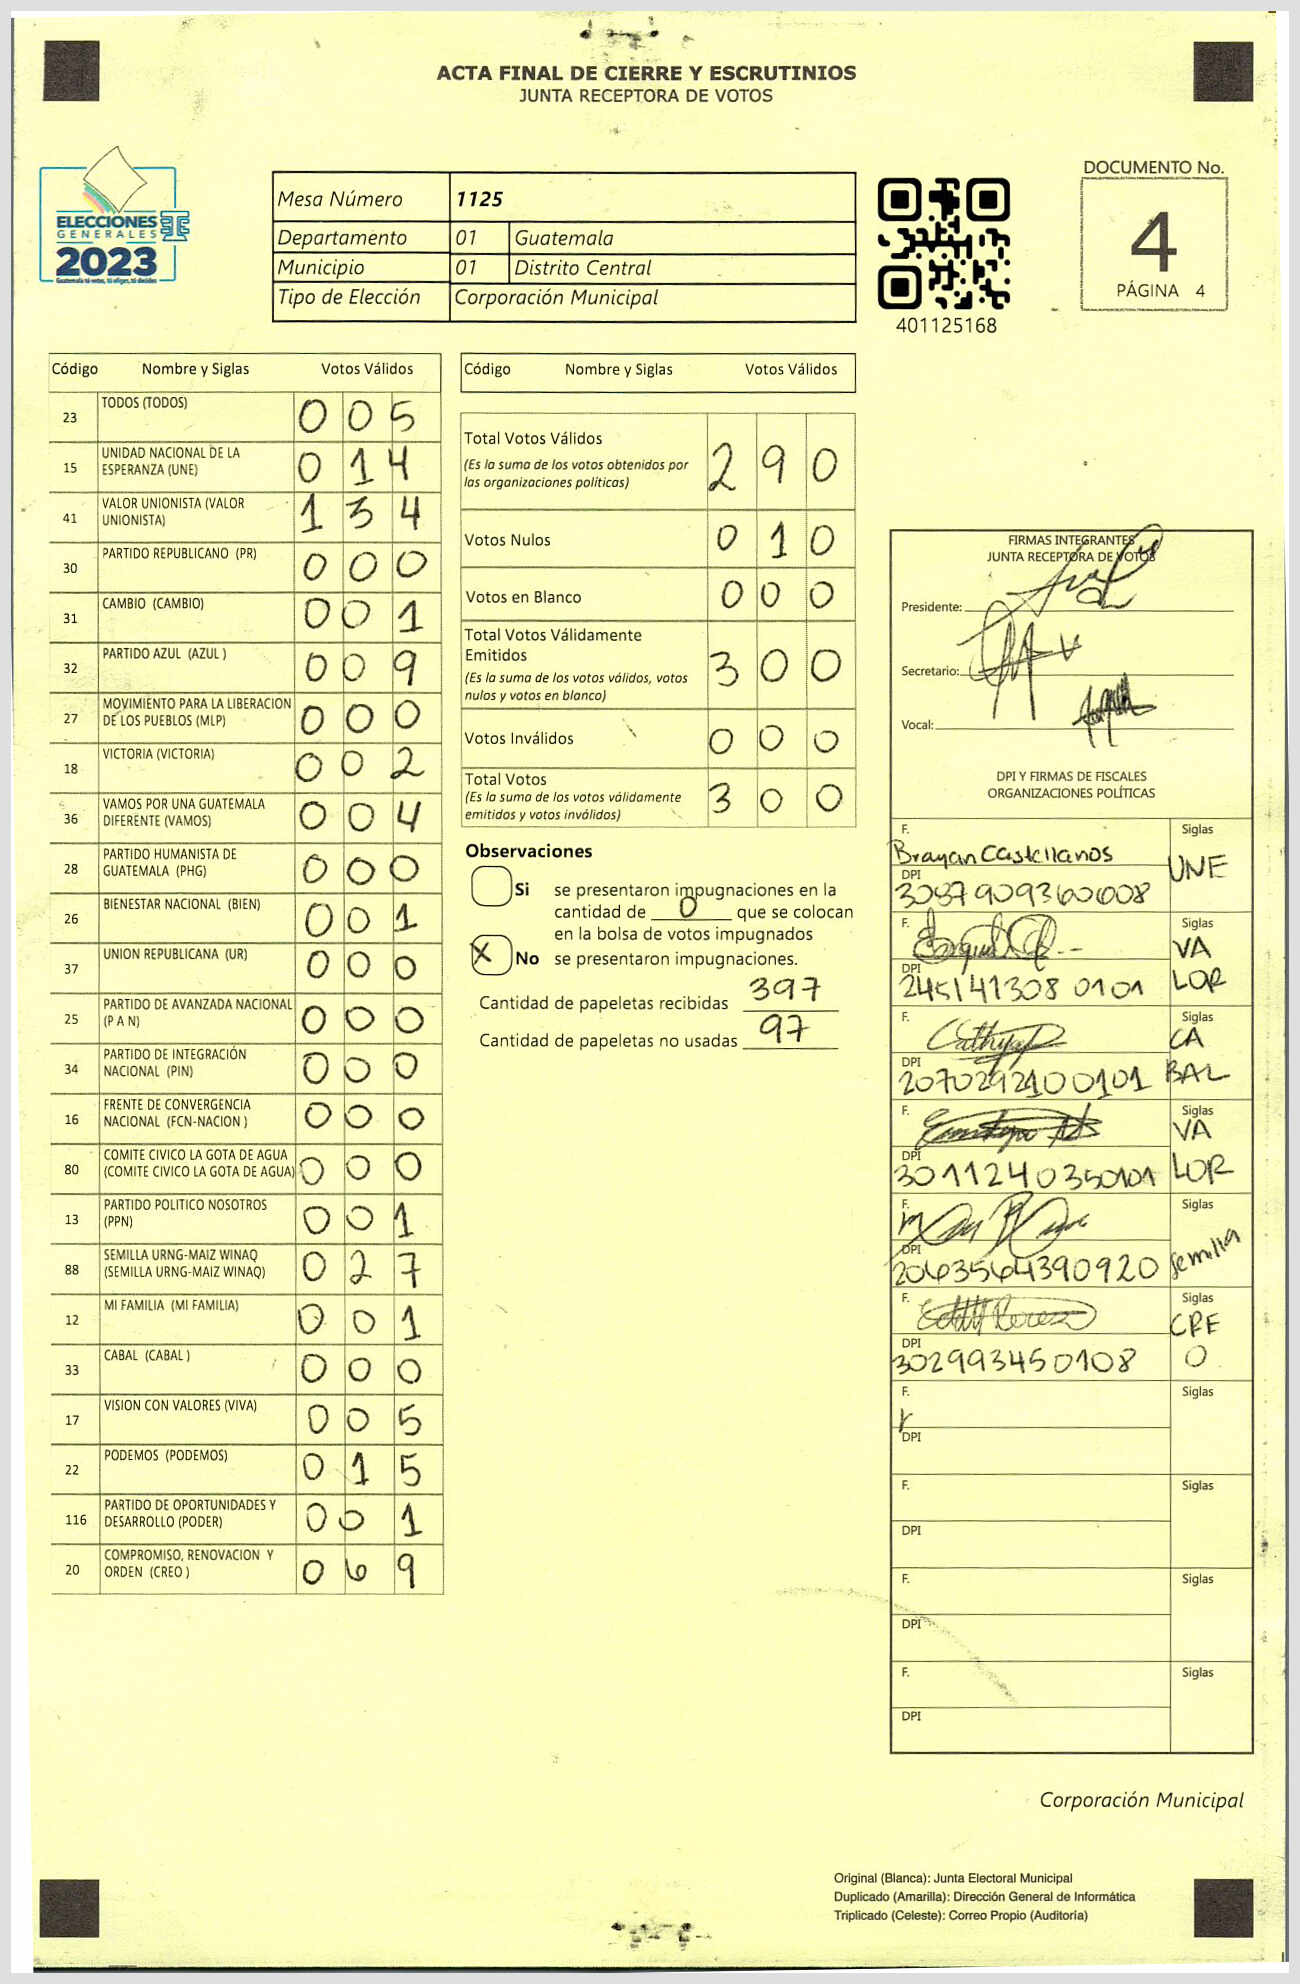 ACTA FINAL DE CIERRE Y ESCRUTINIOS
JUNTA RECEPTORA DE VOTOS
ELECCIONES
GENERALES
2023
Guatemala tú votas, tú eliges, tú decides
Mesa Número 1125
Departamento 01 Guatemala
Municipio 01 Distrito Central
Tipo de Elección Corporación Municipal
401125168
DOCUMENTO No.
4
PÁGINA 4
Código Nombre y Siglas Votos Válidos
23 TODOS (TODOS) 0 0 5
15 UNIDAD NACIONAL DE LA ESPERANZA (UNE) 0 1 4
41 VALOR UNIONISTA (VALOR UNIONISTA) 1 3 4
30 PARTIDO REPUBLICANO (PR) 0 0 0
31 CAMBIO (CAMBIO) 0 0 1
32 PARTIDO AZUL (AZUL ) 0 0 9
27 MOVIMIENTO PARA LA LIBERACION DE LOS PUEBLOS (MLP) 0 0 0
18 VICTORIA (VICTORIA) 0 0 2
36 VAMOS POR UNA GUATEMALA DIFERENTE (VAMOS) 0 0 4
28 PARTIDO HUMANISTA DE GUATEMALA (PHG) 0 0 0
26 BIENESTAR NACIONAL (BIEN) 0 0 1
37 UNION REPUBLICANA (UR) 0 0 0
25 PARTIDO DE AVANZADA NACIONAL (P A N) 0 0 0
34 PARTIDO DE INTEGRACIÓN NACIONAL (PIN) 0 0 0
16 FRENTE DE CONVERGENCIA NACIONAL (FCN-NACION ) 0 0 0
80 COMITE CIVICO LA GOTA DE AGUA (COMITE CIVICO LA GOTA DE AGUA) 0 0 0
13 PARTIDO POLITICO NOSOTROS (PPN) 0 0 1
88 SEMILLA URNG-MAIZ WINAQ (SEMILLA URNG-MAIZ WINAQ) 0 2 7
12 MI FAMILIA (MI FAMILIA) 0 0 1
33 CABAL (CABAL ) 0 0 0
17 VISION CON VALORES (VIVA) 0 0 5
22 PODEMOS (PODEMOS) 0 1 5
116 PARTIDO DE OPORTUNIDADES Y DESARROLLO (PODER) 0 0 1
20 COMPROMISO, RENOVACION Y ORDEN (CREO ) 0 6 9
Código Nombre y Siglas Votos Válidos
Total Votos Válidos 2 9 0
(Es la suma de los votos obtenidos por
las organizaciones políticas)
Votos Nulos 0 1 0
Votos en Blanco 0 0 0
Total Votos Válidamente
Emitidos 3 0 0
(Es la suma de los votos válidos, votos
nulos y votos en blanco)
Votos Inválidos 0 0 0
Total Votos 3 0 0
(Es la suma de los votos válidamente
emitidos y votos inválidos)
Observaciones
Si se presentaron impugnaciones en la
cantidad de 0 que se colocan
en la bolsa de votos impugnados
X No se presentaron impugnaciones.
Cantidad de papeletas recibidas 397
Cantidad de papeletas no usadas 97
FIRMAS INTEGRANTES
JUNTA RECEPTORA DE VOTOS
Presidente:
Secretario:
Vocal:
DPI Y FIRMAS DE FISCALES
ORGANIZACIONES POLÍTICAS
F. Brayan Castellanos Siglas UNE
DPI 3087909360608
F. Siglas VA LOR
DPI 2451413080101
F. Siglas CA BAL
DPI 2070292100101
F. Siglas VA LOR
DPI 3011240350101
F. Siglas Semilla
DPI 2063564390920
F. Siglas CRE O
DPI 302993450108
F. Siglas
DPI
F. Siglas
DPI
F. Siglas
DPI
F. Siglas
DPI
Corporación Municipal
Original (Blanca): Junta Electoral Municipal
Duplicado (Amarilla): Dirección General de Informática
Triplicado (Celeste): Correo Propio (Auditoría)